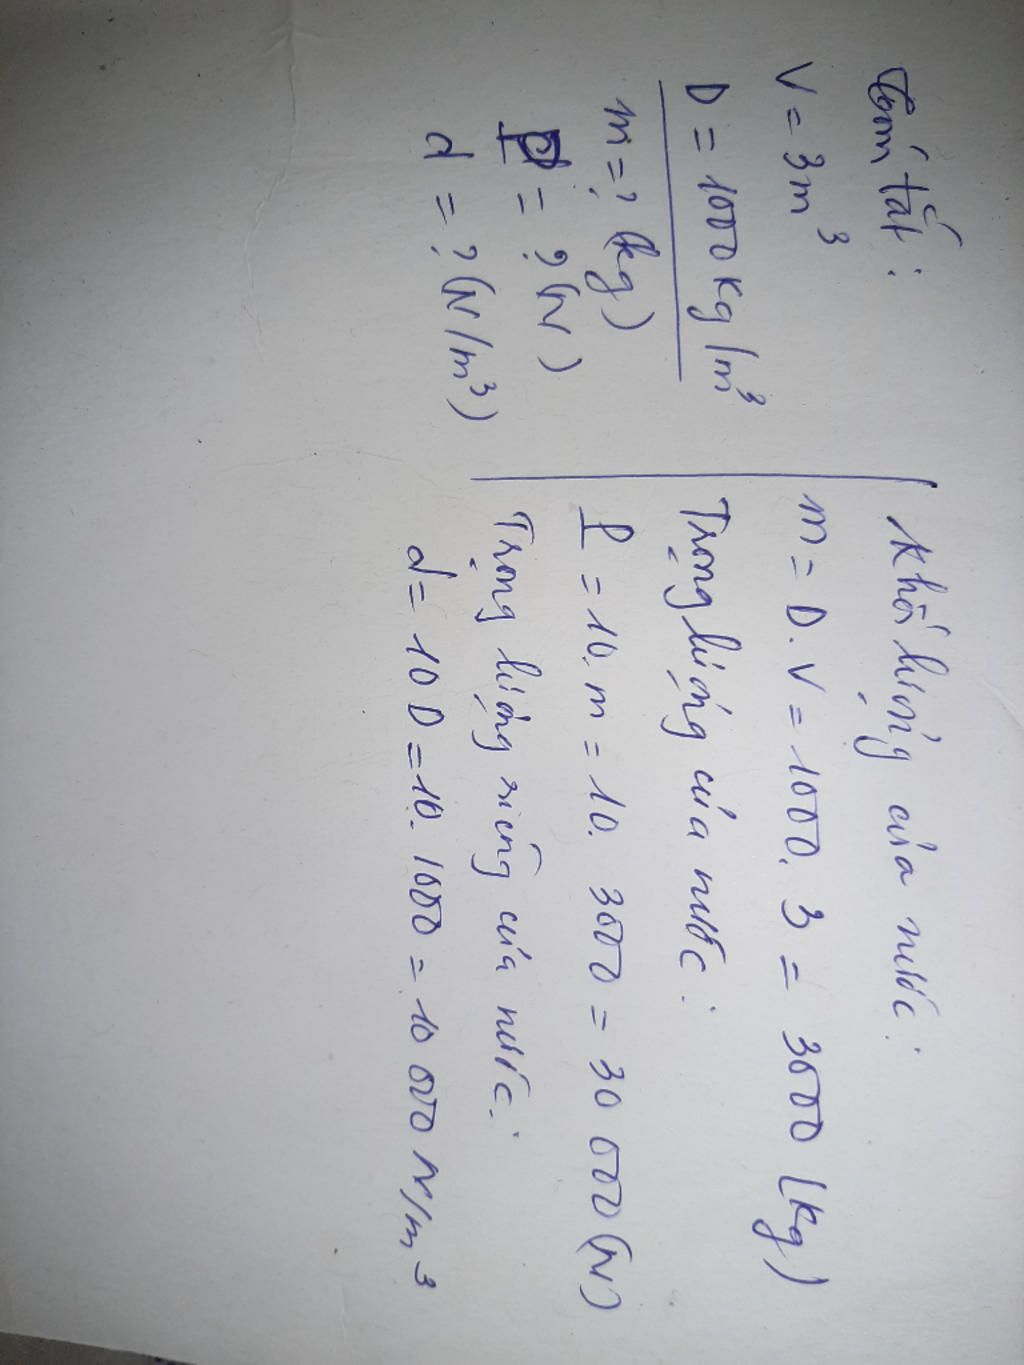 Tóm tắt:
V = 3m³
D = 1000kg/m³
m = ? (kg)
P = ? (N)
d = ? (N/m³)
Khối lượng của nước:
m = D.V = 1000. 3 = 3000 (kg)
Trọng lượng của nước:
P = 10. m = 10. 3000 = 30 000 (N)
Trọng lượng riêng của nước:
d = 10 D = 10. 1000 = 10 000 N/m³